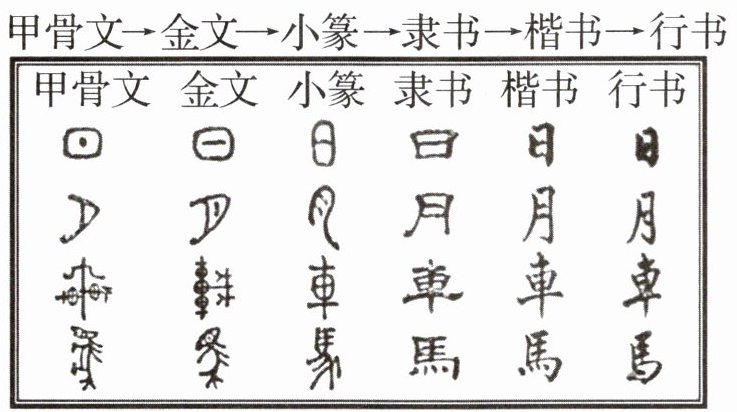 甲骨文→金文→小篆→隶书→楷书→行书
甲骨文 金文 小篆 隶书 楷书 行书
日 日 日 日 日 日
月 月 月 月 月 月
車 車 車 車 車 車
馬 馬 馬 馬 馬 馬